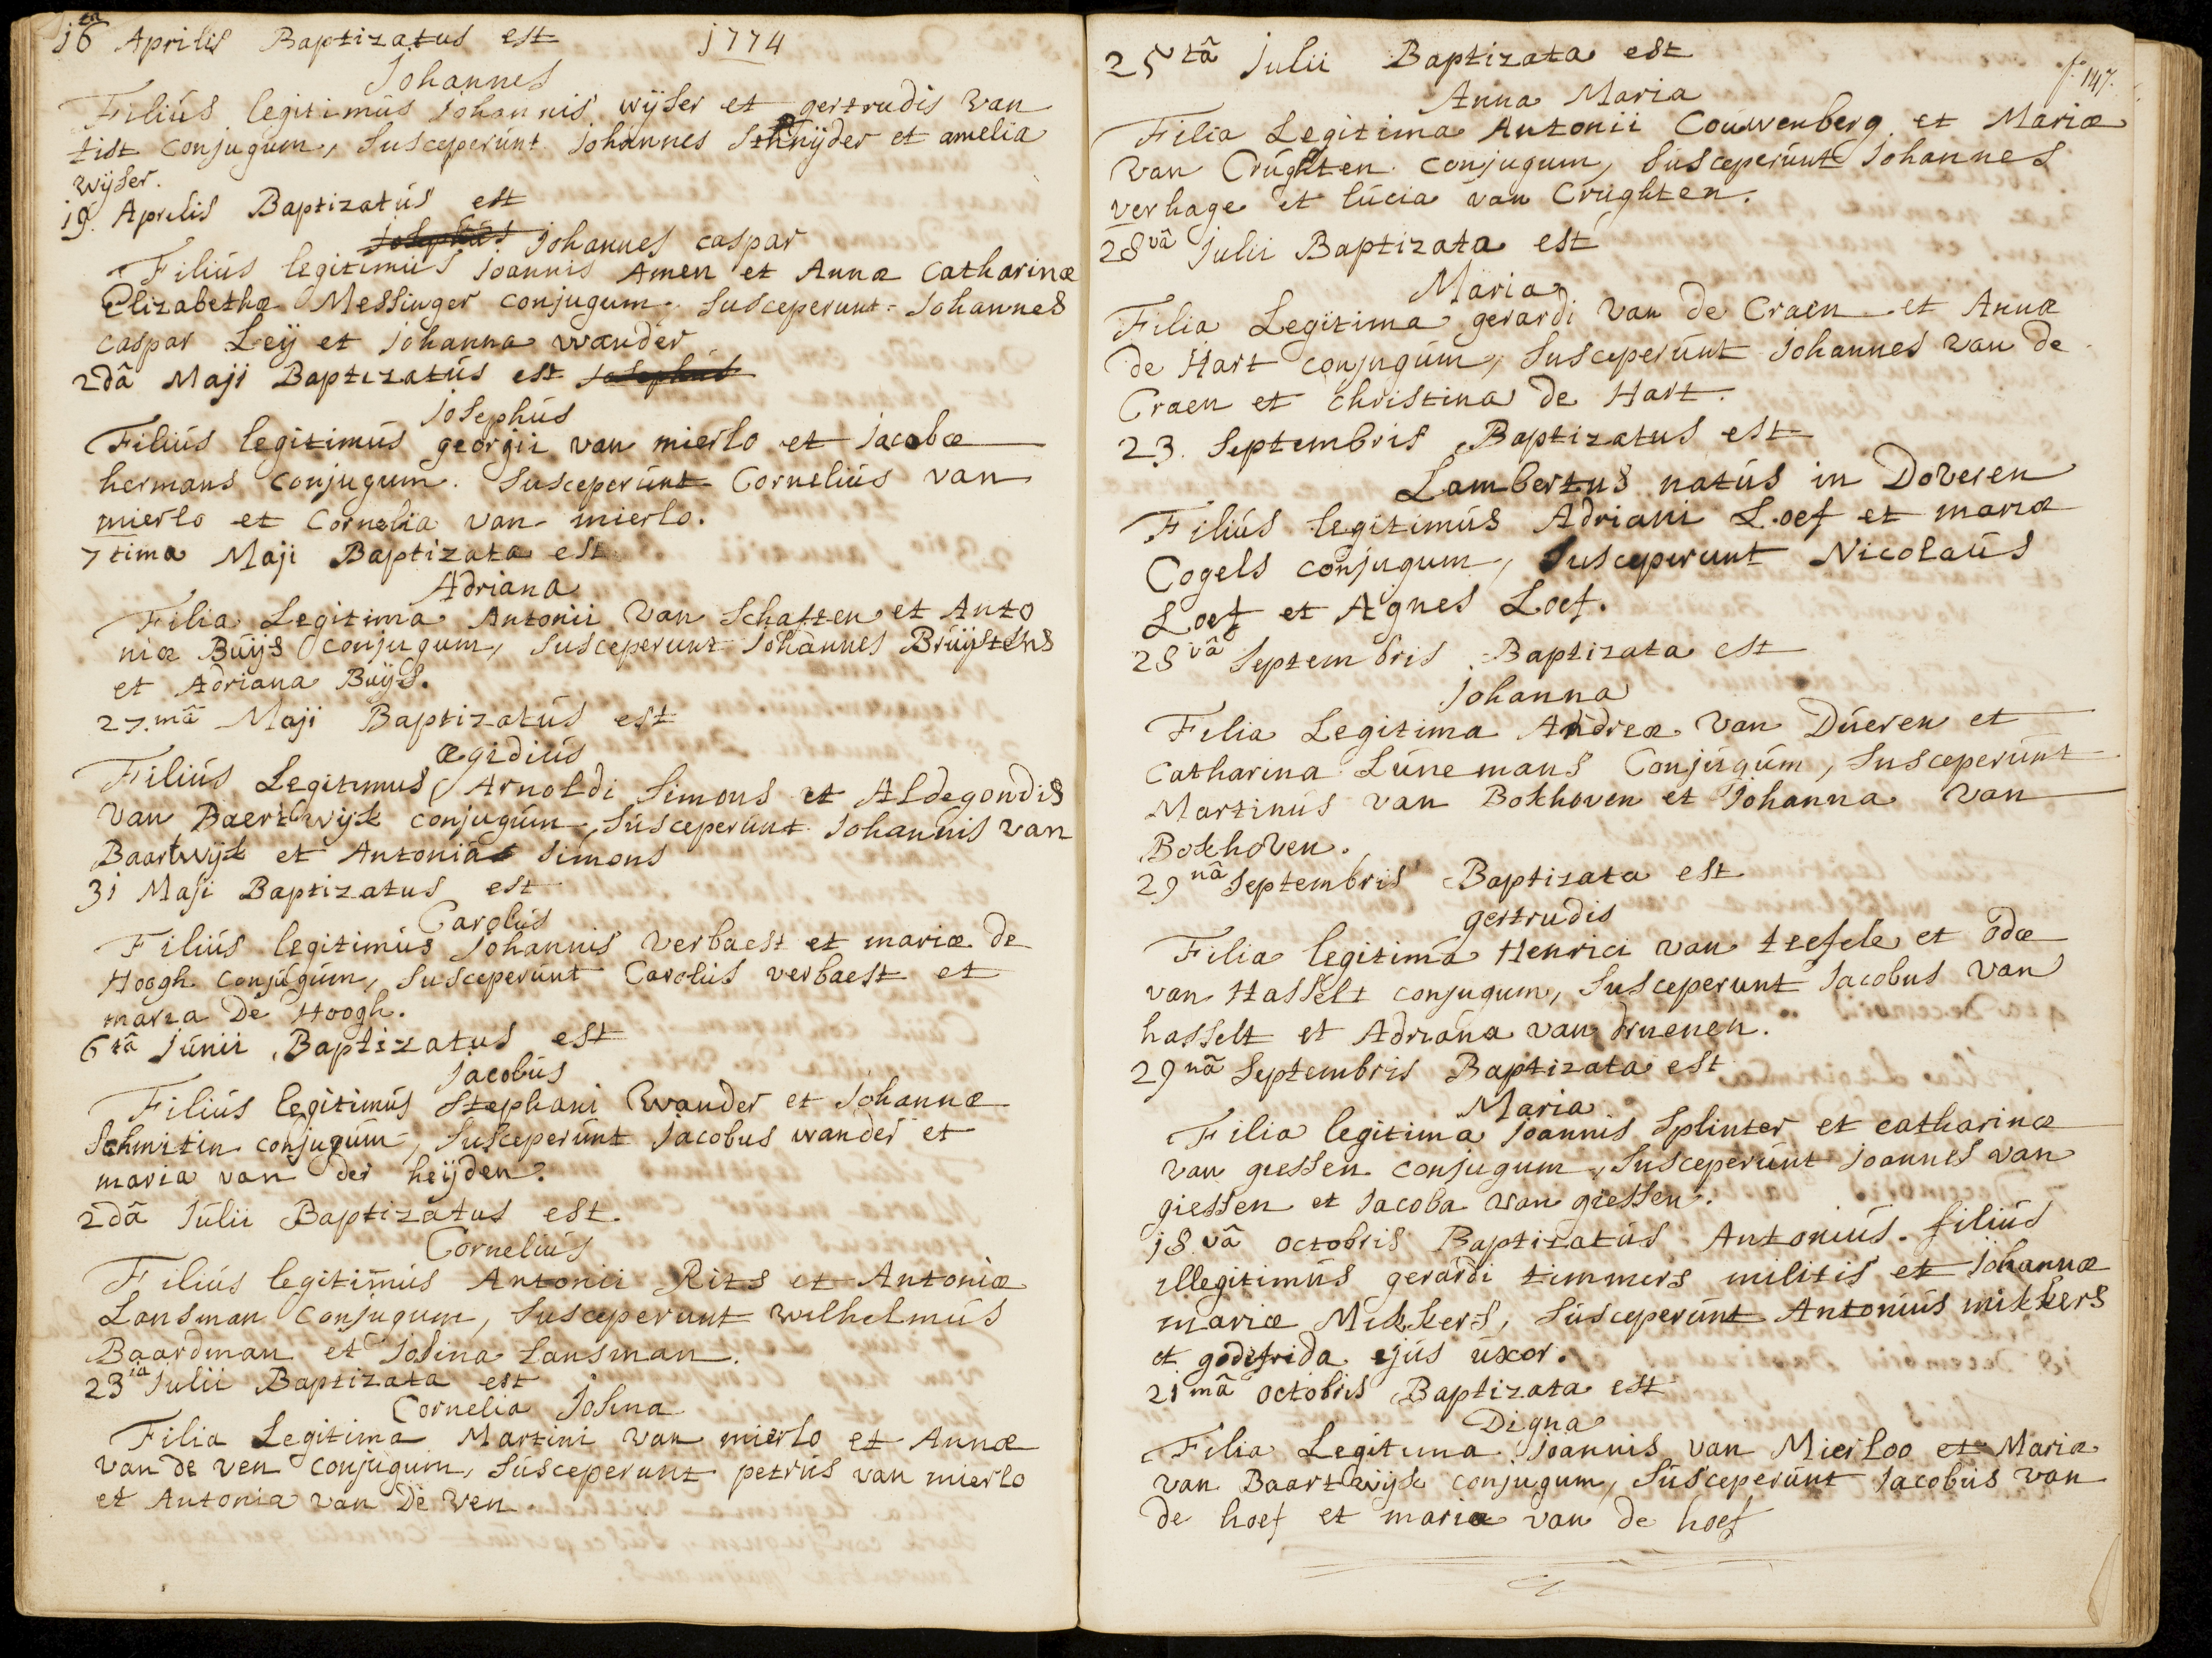 16ta Aprilis Baptizatus est 1774
Johannes
Filiús legitimús Johannis wijser et gertrudis van
tist conjugúm, Susceperúnt Johannes Schnijder et amelia
wijser.
19. Aprilis Baptizatús est
Josephús Johannes caspar
Filiús legitimús Joannis Amen et Annæ Catharinæ
Elizabethæ Messinger conjugum. Susceperunt Johannes
caspar Leij et Johanna wander
2dâ Maji Baptizatús est Josephús
Josephús
Filiús legitimús georgii van mierlo et Jacobæ
hermans conjugum. Susceperúnt Corneliús van
mierlo et Cornelia van mierlo.
7tima Maji Baptizata est
Adriana
Filia Legitima Antonii van Schaften et Anto
niæ Búijs conjugum, Susceperunt Johannes Brúijstens
et Adriana Búijs.
27.mâ Maji Baptizatús est
Ægidiús
Filiús Legitimus Arnoldi Simons et Aldegondis
van Baertwijk conjugúm, Súsceperúnt Johannis van
Baartwijk et Antonia Simons
31 Maji Baptizatus est
Carolús
Filiús legitimús Johannis Verbaest et mariæ de
Hoogh conjúgúm, Susceperúnt Carolús verbaest et
maria De Hoogh.
6tâ Júnii Baptizatus est
Jacobús
Filiús legitimús Stephani Wander et Johannæ
Schmitin conjugúm, Susceperúnt Jacobus wander et
maria van der heijden.
2dâ Júlii Baptizatus est.
Corneliús
Filiús legitimús Antonii Rits et Antoniæ
Lansman Conjugum, Susceperunt wilhelmús
Baardman et Josina Lansman.
23ia Julii Baptizata est
Cornelia Josina
Filia Legitima Martini van mierlo et Annæ
van de ven conjúgúm, Súsceperunt petrús van mierlo
et Antonia van De Ven.
f 147.
25tâ Julii Baptizata est
Anna Maria
Filia Legitima Antonii Coúwenberg et Mariæ
van Crúghten conjugum, Súsceperúnt Johannes
verhage et lúcia van Crúghten.
28vâ Julii Baptizata est
Maria
Filia Legitima gerardi van de Craen et Annæ
de Hart conjugúm, Susceperúnt Johannes van de
Craen et Christina de Hart.
23. Septembris Baptizatus est
Lambertus natús in Doveren
Filiús legitimús Adriani Loef et mariæ
Cogels conjugum, Susceperunt Nicolaús
Loef et Agnes Loef.
28vâ Septembris Baptizata est
Johanna
Filia Legitima Andreæ van Dúeren et
Catharina Lúnemans Conjúgúm, Susceperúnt
Martinús van Bokhoven et Johanna van
Bokhoven.
29nâ Septembris Baptizata est
gertrudis
Filia legitima Henrici van tefele et odæ
van Hasselt conjugum, Susceperunt Jacobus van
hasselt et Adriana van drnenen.
29nâ Septembris Baptizata est
Maria
Filia legitima Joannis Splinter et catharinæ
van giessen conjugum, Susceperúnt Joannes van
giessen et Jacoba van giessen.
18.vâ octobris Baptizatús Antoniús. filiús
illegitimús gerardi timmers militis et Johannæ
mariæ Mikkers, Súsceperúnt Antoniús mikkers
et godefrida ejús úxor.
21mâ octobris Baptizata est
Digna
Filia Legitima Joannis van Mierloo et Mariæ
van Baartwijk conjugum, Súsceperúnt Jacobús van
de hoef et maria van de hoef